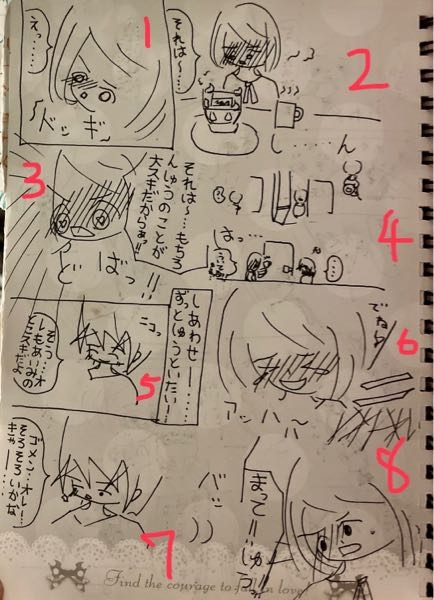 1
えっ…
ドッギ
2
それは〜…
し……ん
3
それは〜…もちろ
んしゅうのことが
大スキだからぁっ!!
どばっ
!!
4
はっ…
…
5
しあわせー……
ずっとしゅうといたい!…
ニコッ
そっ…オ
レもあいみの
ことスキだよ
6
でれら
アッハハ〜
7
ゴメン…オレ…
そろそろいかな
きゃー…
バッ
8
まって!!しゅうっ
Find the courage to fall in love